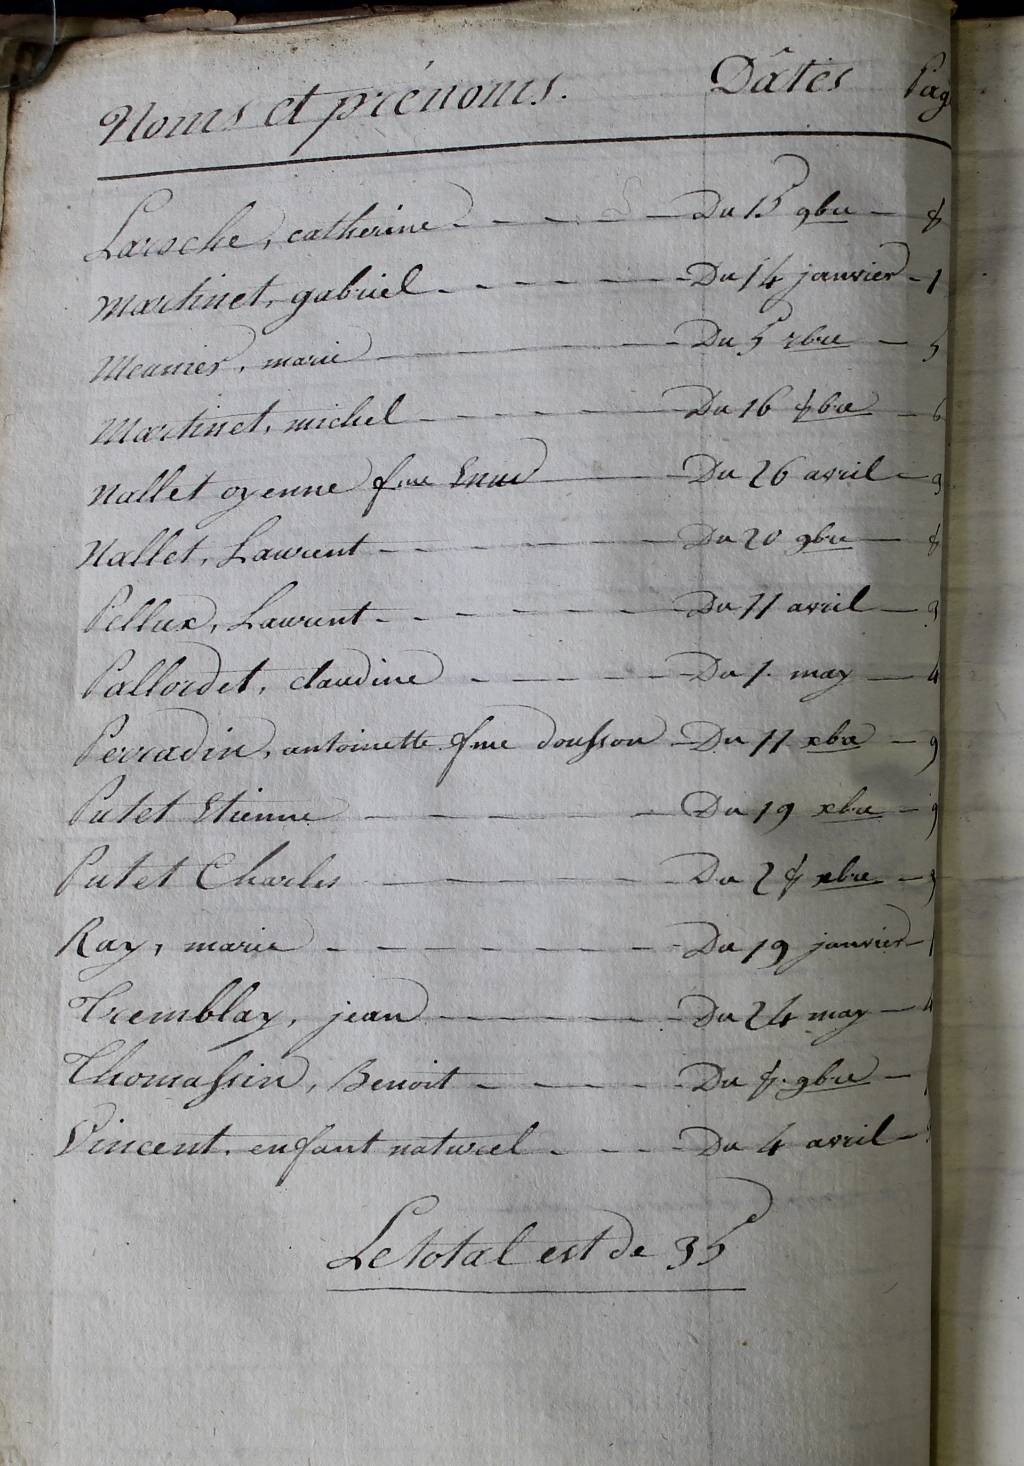 Noms et prénoms. Dâtes Pag
Laroche, catherine Du 15 9bre 8
Martinet, gabriel Du 14 janvier 1
Meunier, marie Du 5 7bre 5
Martinet, michel Du 16 8bre 6
Nallet oyenne fme Du 26 avril 3
Nallet, Laurent Du 20 9bre 8
Pellux, Laurent Du 11 avril 3
Pallordet, claudine Du 1. may 4
Perradin, antoinette fme dousson Du 11 xbre 9
Putet Etienne Du 19 xbre 9
Putet Charles Du 28 xbre 9
Ray, marie Du 19 janvier 1
Tremblay, jean Du 24 may 4
Thomassin, Benoit Du 8. 9bre
Vincent, enfant naturel Du 4 avril
Le total est de 35